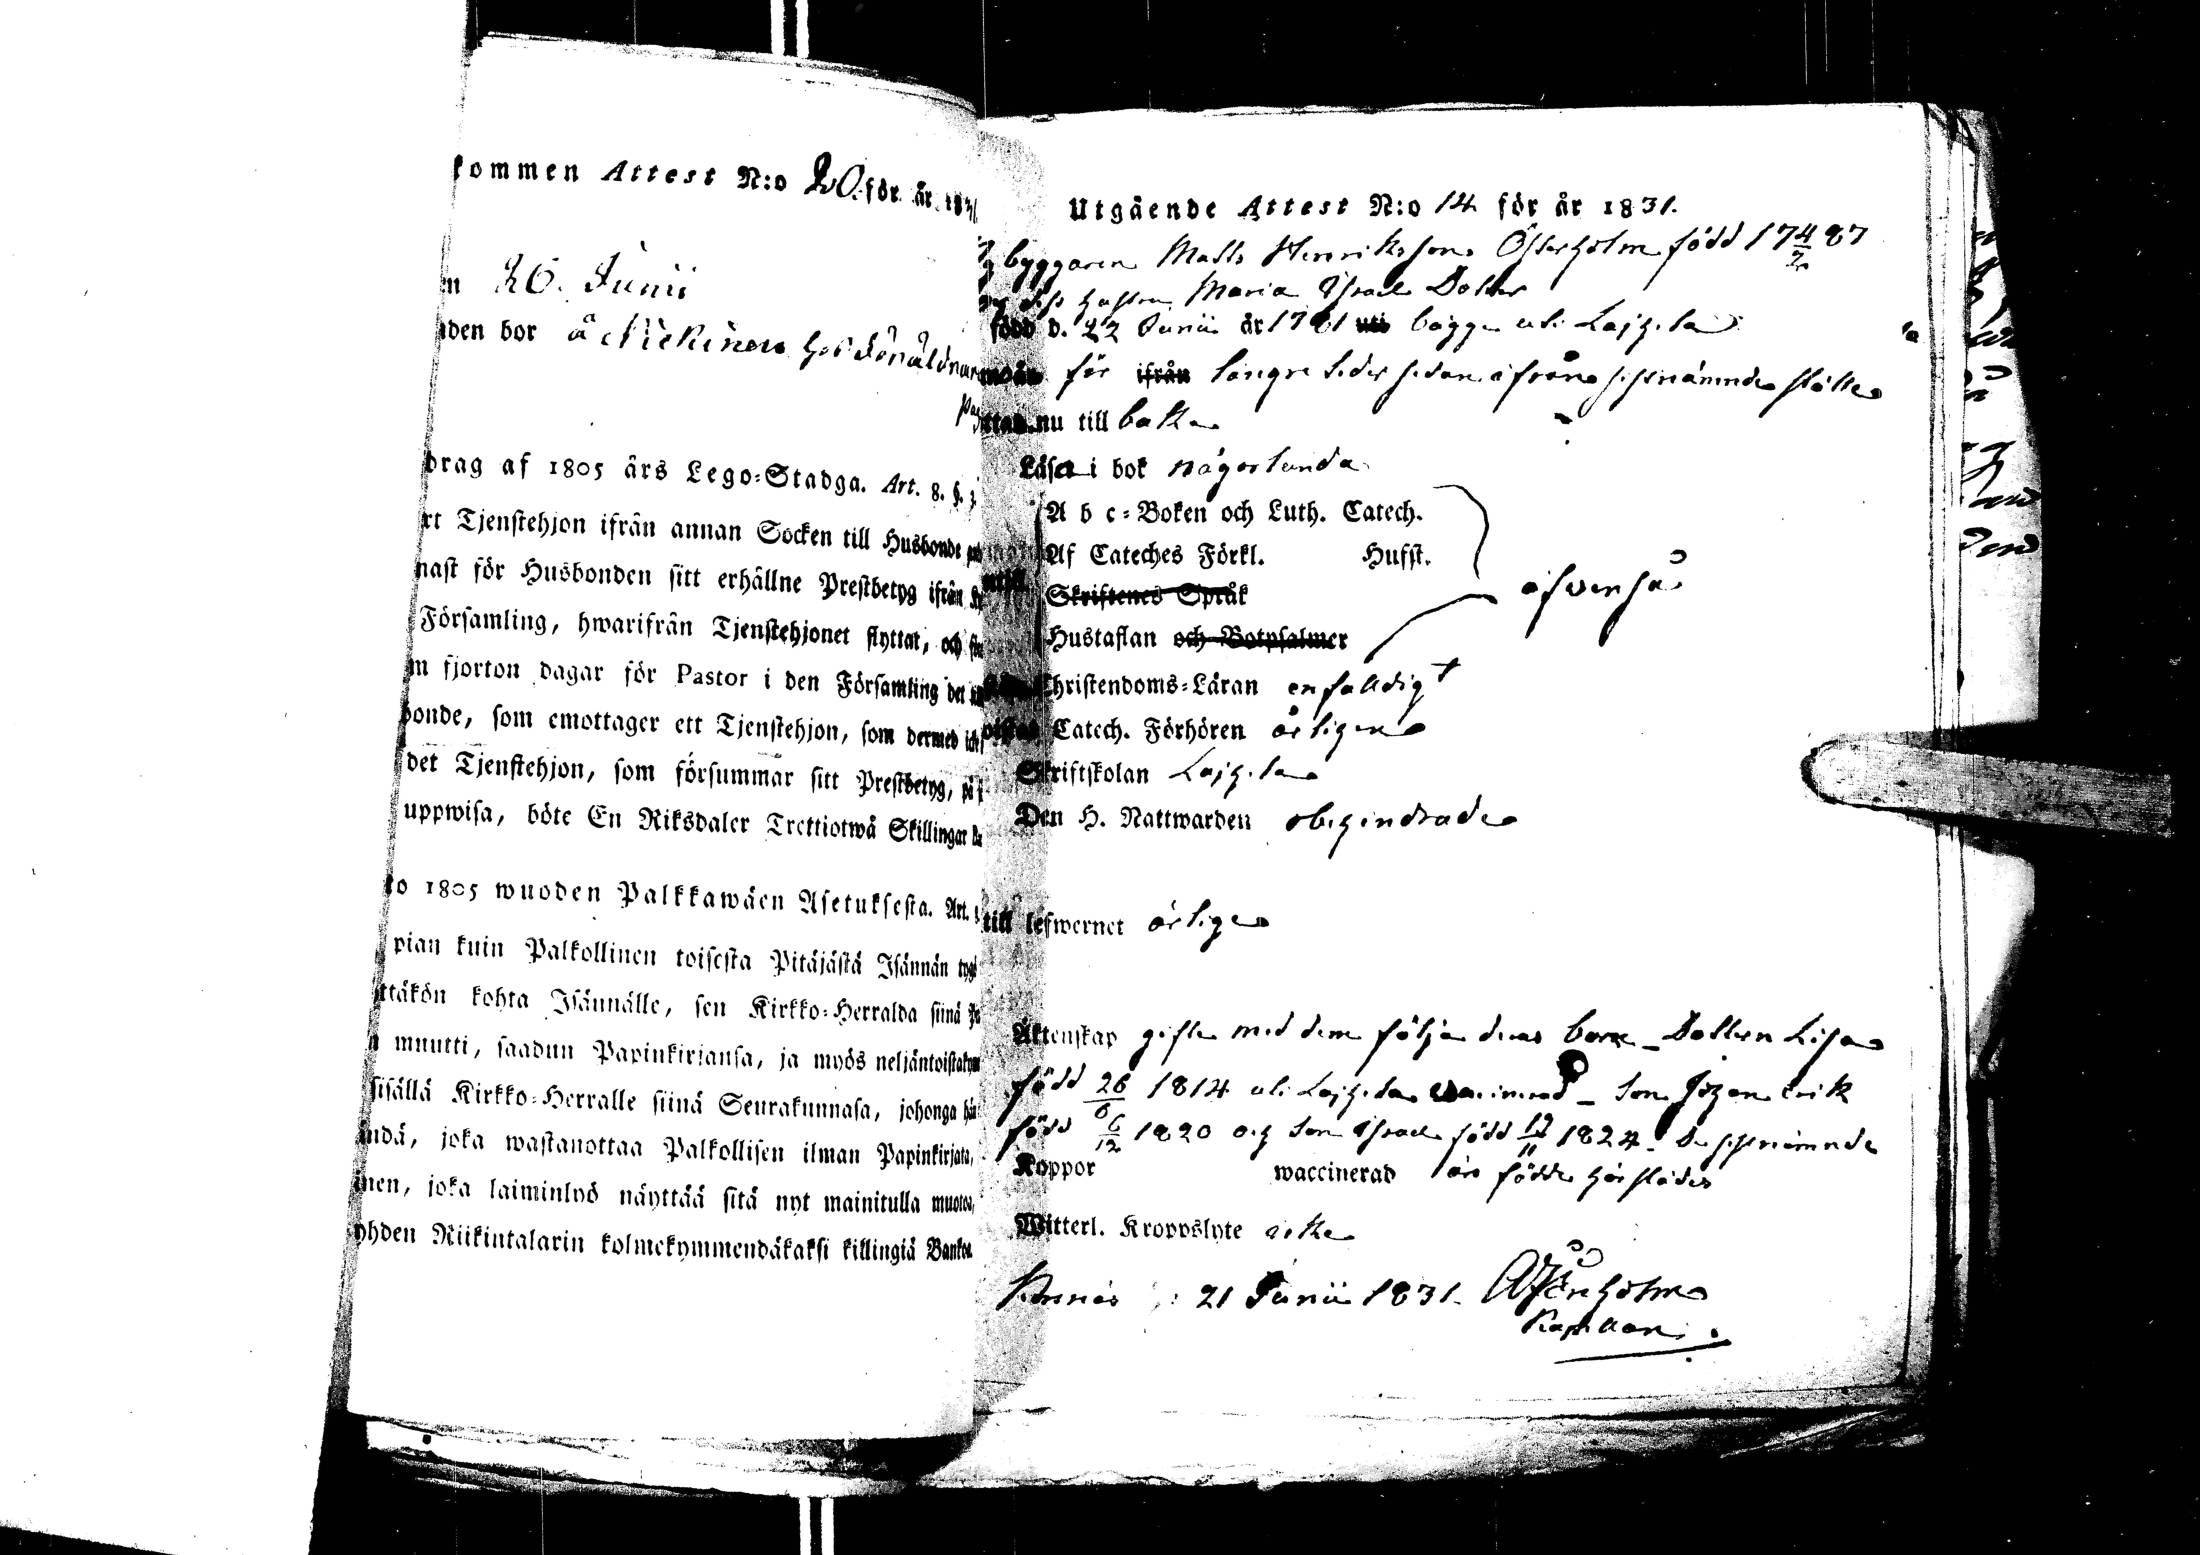 kommen Attest N:o 20 för år 1831
26. Junii
den bor å
drag af 1805 års Lego-Stadga. Art. 8. §. 3.
Tjenstehjon ifrån annan Socken till Husbonde
för Husbonden sitt erhållne Prestbetyg ifrån
Församling, hwarifrån Tjenstehjonet flyttat, och
fjorton dagar för Pastor i den Församling det
bonde, som emottager ett Tjenstehjon, som dermed icke
det Tjenstehjon, som försummar sitt Prestbetyg, på
uppwisa, böte En Riksdaler Trettiotwå Skillingar
1805 wuoden Palkkawäen Asetuksesta. Art.
pian kuin Palkollinen toisesta Pitäjästä Isännän tygö
ttäkön kohta Isännälle, sen Kirkko-Herralda siinä
muutti, saadun Papinkirjansa, ja myös neljäntoistakym
sisällä Kirkko-Herralle siinä Seurakunnasa, johonga hän
ändä, joka wastanottaa Palkollisen ilman Papinkirjata,
inen, joka laiminlyö näyttää sitä nyt mainitulla muotoa,
yhden Riikintalarin kolmekymmendäkaksi killingiä Bankos
Utgående Attest N:o 14 för år 1831.
byggaren Matts Henriksson Österholm född 17 4/2 87
Hustru Maria Israels Dotter
född d. 22 Junii år 1781 uti bägge uti Lajhela
för ifrån längre tider sedan ifrån sistnämnde ställe
nu till baka
Läser i bok någorlunda
A b c-Boken och Luth. Catech.
Af Cateches Förkl. Hufst.
Skriftenes Språk
äfwenså
Hustaflan och Botpsalmer
Christendoms-Läran enfaldigt
Catech. Förhören årligen
Skriftskolan Lajhela
Den H. Nattwarden obehindrade
till lefwernet ärlige
Äktenskap gifte med dem följa deras barn - Dottern Lisa
född 26/6 1814 uti Lajhela vaccinerad - Son Johan Erik
född 6/12 1820 och Son Israel född 12/11 1824 - De sistnämnde
Koppor waccinerad äro födde härstädes
Witterl. Kroppslyte icke
21 Junii 1831.
Kapellan